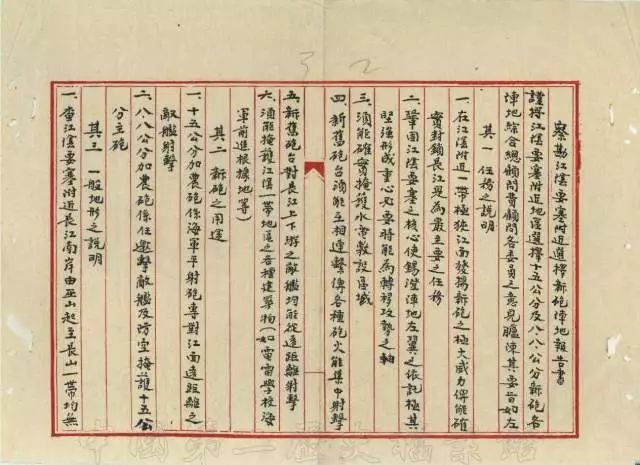 察勘江陰要塞附近選擇新砲陣地報告書
謹將江陰要塞附近地區選擇十五公分及八八公分新砲各
陣地綜合總顧問暨顧問各委員之意見臚陳其要旨如左
其一 任務之說明
一、在江陰附近一帶極狹江面發揚新砲之極大威力俾能確
實封鎖長江是為最主要之任務
二、鞏固江陰要塞之核心使錫澄陣地左翼之依託極其
堅強形成重心必要時能為轉移攻勢之軸
三、須能確實掩護水雷敷設區域
四、新舊砲台須能互相連繫俾各種砲火能集中射擊
五、新舊砲台對長江上下游之敵艦均能從遠距離射擊
六、須能掩護江陰一帶地區之各種建築物(如電雷學校海
軍前進根據地等)
其二 新砲之用途
一、十五公分加農砲係海軍平射砲專對江面遠距離之
敵艦射擊
二、八八公分加農砲係任邀擊敵艦及防空掩護十五公
分主砲
其三 一般地形之說明
一、查江陰要塞附近長江南岸由巫山起至長山一帶均無
中國第二歷史檔案館